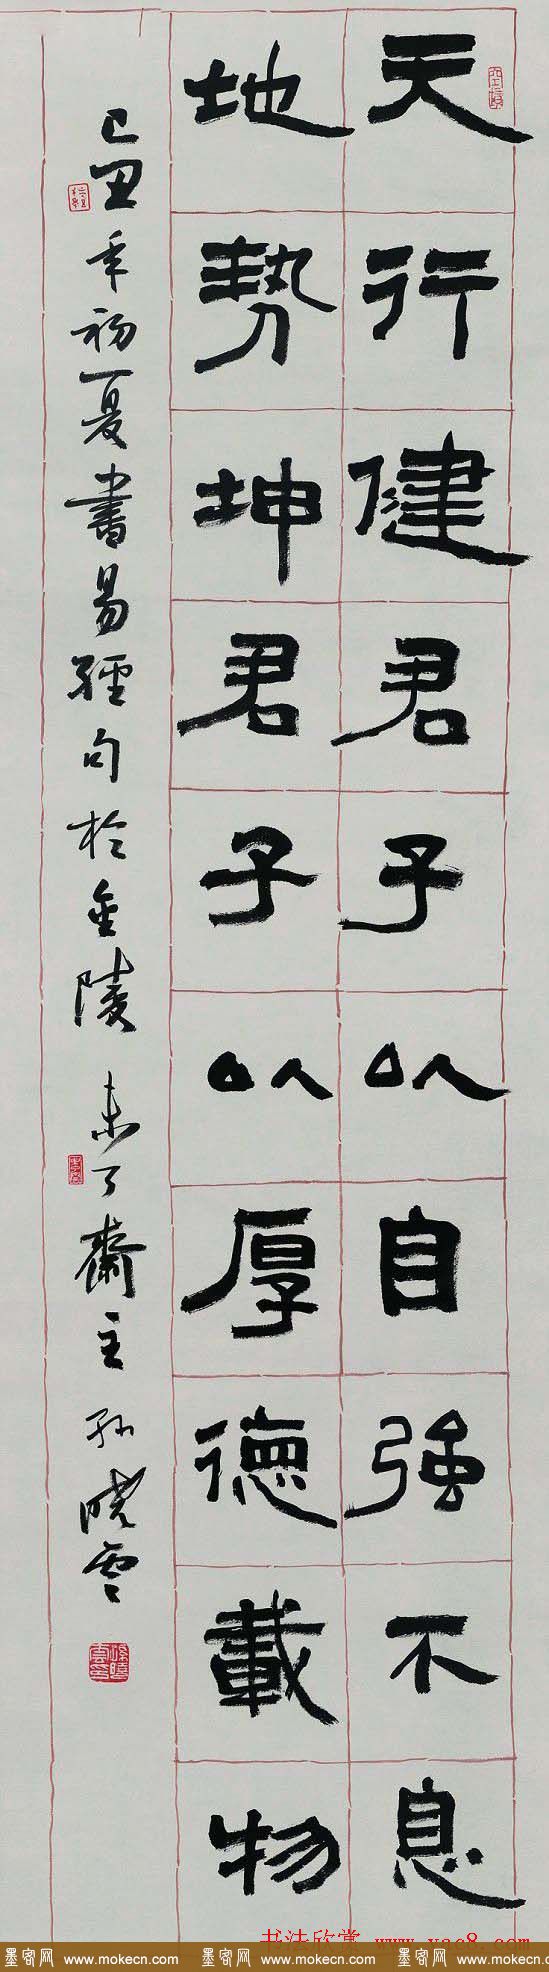 天行健君子以自強不息
地勢坤君子以厚德載物
己丑年初夏書易經句於金陵 未了齋主孫曉雲
书法欣赏 www.yac8.com
墨客网 www.mokecn.com 墨客网 www.mokecn.com 墨客网 www.mokecn.com